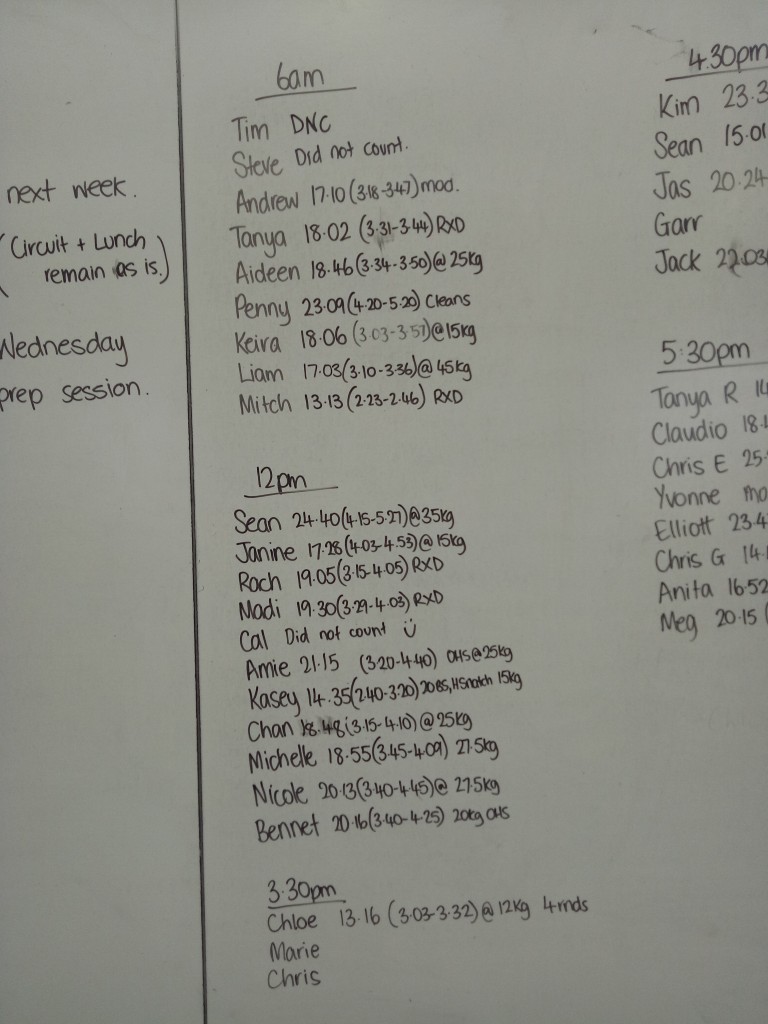 next week.
(Circuit + Lunch
remain as is.)
Wednesday
prep session.
6am
Tim DNC
Steve Did not count.
Andrew 17.10 (3.18-3.47) mod.
Tanya 18.02 (3.31-3.44) RXD
Aideen 18.46 (3.34-3.50) @ 25kg
Penny 23.09 (4.20-5.20) Cleans
Keira 18.06 (3.03-3.57) @ 15kg
Liam 17.03 (3.10-3.36) @ 45kg
Mitch 13.13 (2.23-2.46) RXD
12pm
Sean 24.40 (4.15-5.27) @ 35kg
Janine 17.28 (4.03-4.53) @ 15kg
Roch 19.05 (3.15-4.05) RXD
Madi 19.30 (3.29-4.03) RXD
Cal Did not count
Amie 21.15 (3.20-4.40) OHS @ 25kg
Kasey 14.35 (2.40-3.20) 20BS, HSnatch 15kg
Chan 18.48 (3.15-4.10) @ 25kg
Michelle 18.55 (3.45-4.09) 27.5kg
Nicole 20.13 (3.40-4.45) @ 27.5kg
Bennet 20.16 (3.40-4.25) 20kg OHS
3.30pm
Chloe 13.16 (3.03-3.32) @ 12kg 4rnds
Marie
Chris
4.30pm
Kim 23.3
Sean 15.01
Jas 20.24
Garr
Jack 22.03
5:30pm
Tanya R 14
Claudio 18.
Chris E 25.
Yvonne mo
Elliott 23.4
Chris G 14.
Anita 16.52
Meg 20.15 (